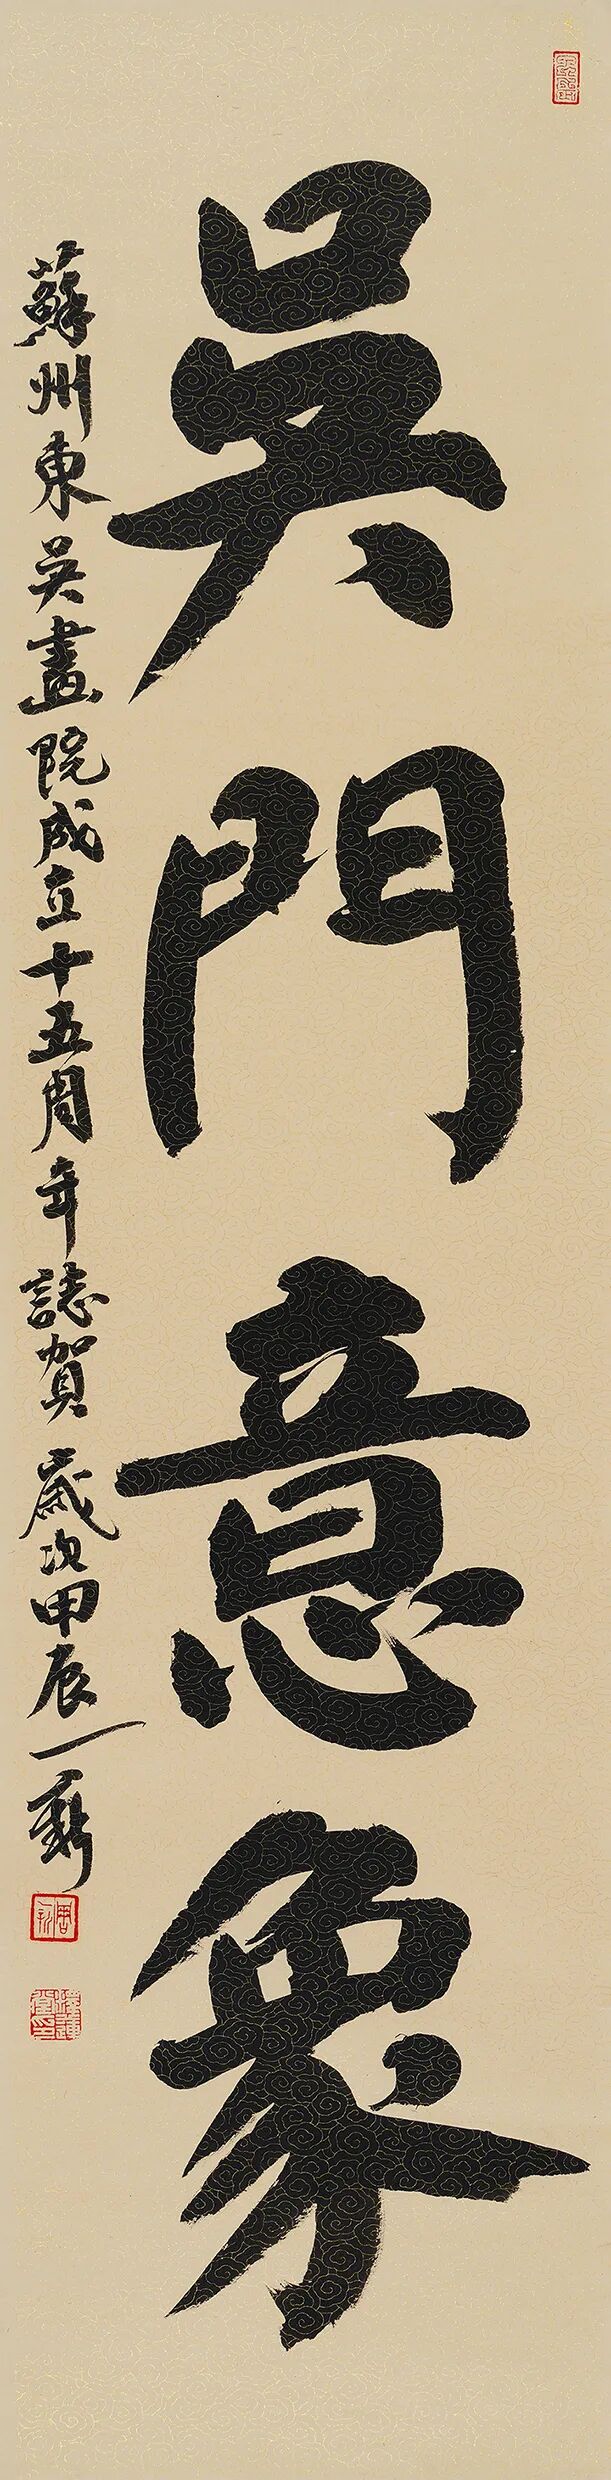 吳門意象
蘇州東吳畫院成立十五周年誌賀 歲次甲辰一新